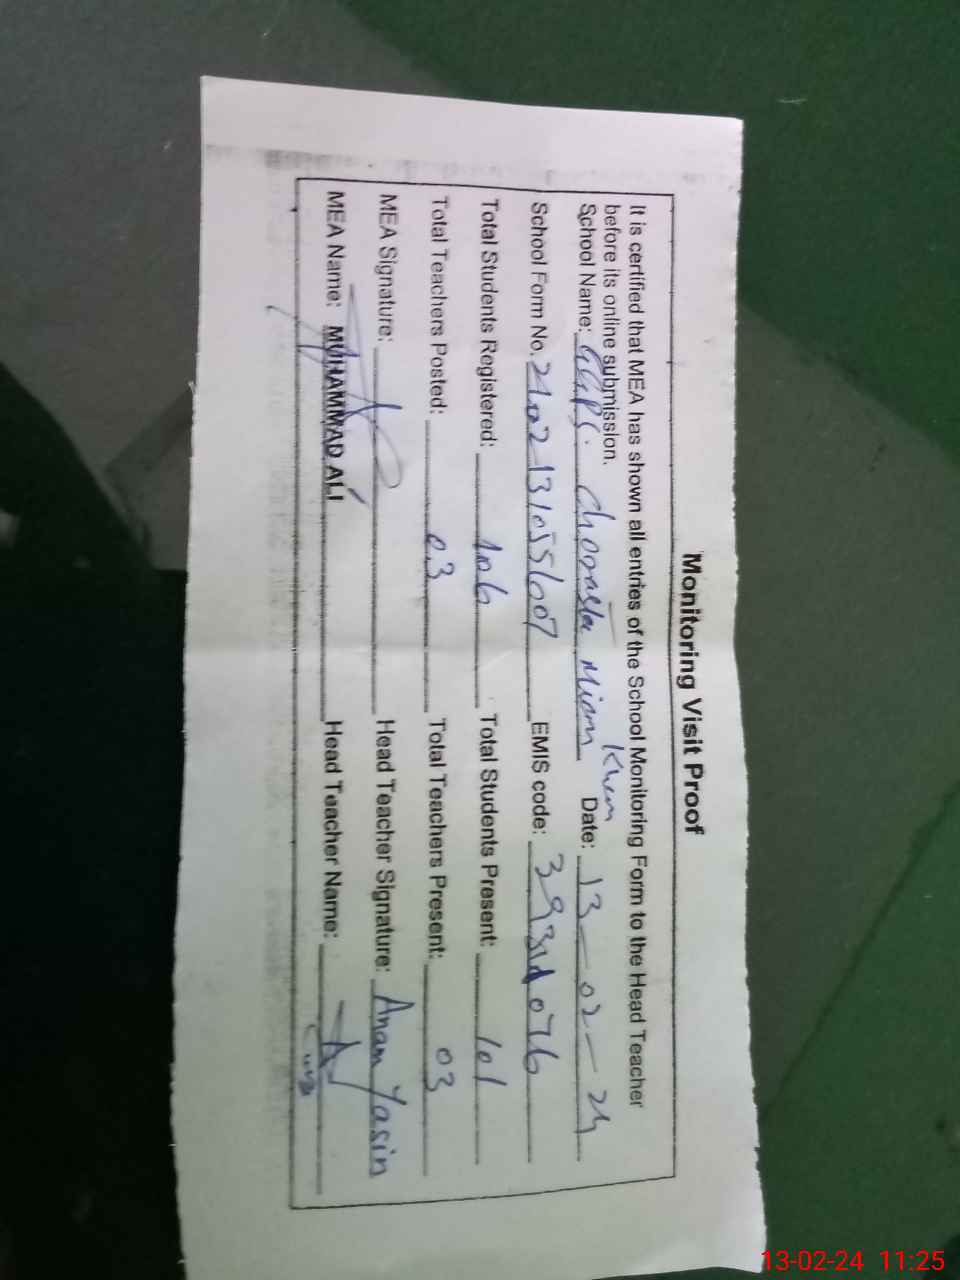 Monitoring Visit Proof
It is certified that MEA has shown all entries of the School Monitoring Form to the Head Teacher
before its online submission.
School Name: GGPS. Chorasta Miam Khem Date: 13-02-24
School Form No. EMIS code:
Total Students Registered: 106 Total Students Present: 101
Total Teachers Posted: 03 Total Teachers Present: 03
MEA Signature: Head Teacher Signature: Anam Yasin
MEA Name: MUHAMMAD ALI Head Teacher Name:
13-02-24 11:25